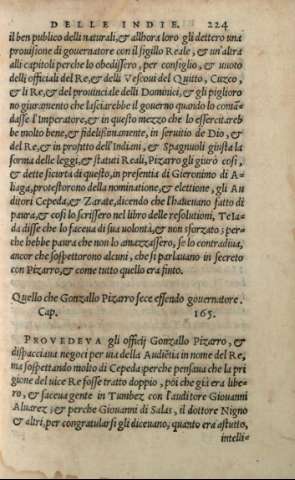 DELLE INDIE. 224
il ben publico delli naturali, & allhora loro gli dettero una
prouisione di gouernatore con il sigillo Reale, & un'altra
alli capitoli perche lo obedissero, per consiglio, & uuoto
delli officiali del Re, & delli Vescoui del Quitto, Cuzco,
& li Re, & del prouinciale delli Dominici, & gli piglioro
no giuramento che lasciarebbe il gouerno quando lo comā
dasse l'Imperatore, & in questo mezzo che lo essercitareb
be molto bene, & fidelissimamente, in seruitio de Dio, &
del Re, & in profitto dell'Indiani, & Spagnuoli giusta la
forma delle leggi, & statuti Reali, Pizarro gli giurò cosi,
& dette sicurtà di questo, in presentia di Gieronimo di A-
liaga, protestorono della nominatione, & elettione, gli Au
ditori Cepeda, & Zarate, dicendo che l'haueuano fatto di
paura, & cosi lo scrissero nel libro delle resolutioni, Teia-
da disse che lo faceua di sua uolontà, & non sforzato; per-
che hebbe paura che non lo amazzassero, se lo contradiua,
ancor che sospettorono alcuni, che si parlauano in secreto
con Pizarro, & come tutto quello era finto.
Quello che Gonzallo Pizarro fece essendo gouernatore.
Cap. 165.
PROVEDEVA gli officij Gonzallo Pizarro, &
dispacciaua negoci per uia della Audiētia in nome del Re,
ma sospettando molto di Cepeda perche pensaua che la pri
gione del uice Re fosse tratto doppio, poi che gia era libe-
ro, & faceua gente in Tumbez con l'auditore Giouanni
Aluarez; & perche Giouanni di Salas, il dottore Nigno
& altri, per congratularsi gli diceuano, quanto era astutto,
intelli-